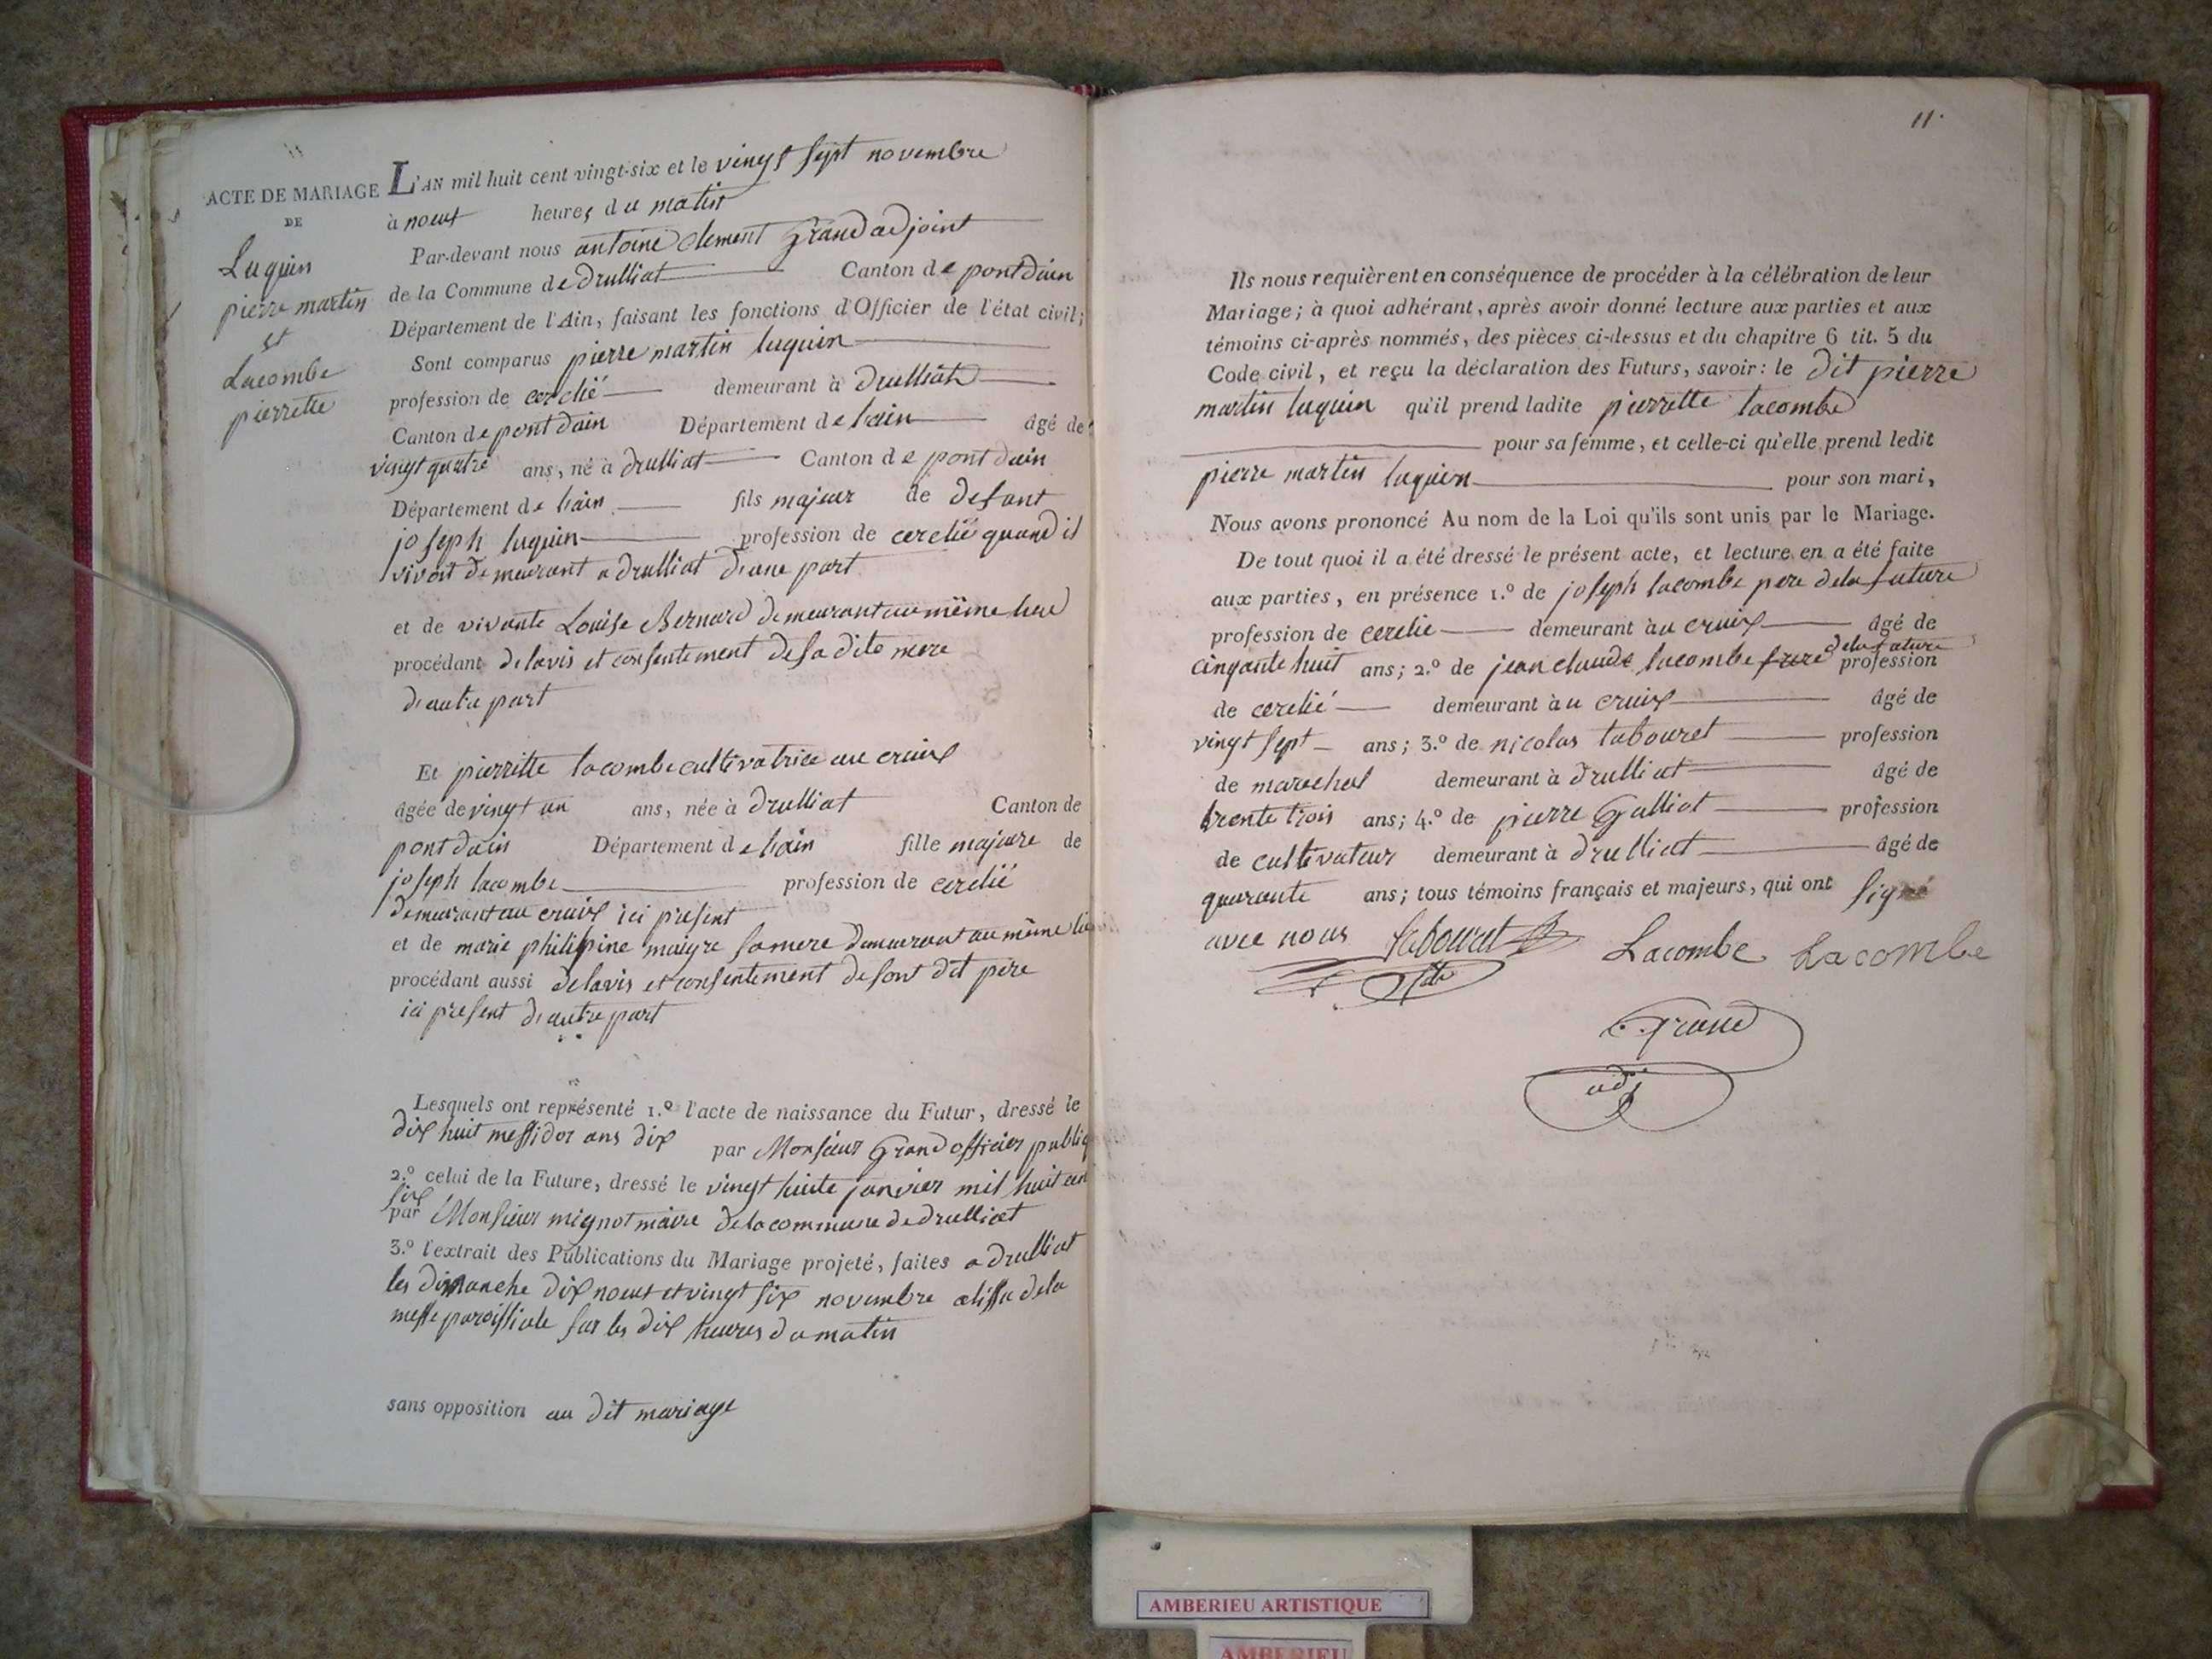 ACTE DE MARIAGE
DE
Luquin
pierre martin
et
Lacombe
pierrette
L'AN mil huit cent vingt-six et le vingt sept novembre
à neuf heures du matin
Par-devant nous antoine clement Grand adjoint
de la Commune de druillat Canton de pontdain
Département de l'Ain, faisant les fonctions d'Officier de l'état civil;
Sont comparus pierre martin luquin
profession de cerclié demeurant à druillat
Canton de pont dain Département de lain âgé de
vingt quatre ans, né à druillat Canton de pont dain
Département de lain fils majeur de defant
joseph luquin profession de cerclié quand il
vivoit demeurant a druillat d'une part
et de vivante Louise Bernard demeurant au même lieu
procédant de lavis et consentement de sa dite mere
d'autre part
Et pierrette lacombe cultivatrice au cruix
âgée de vingt un ans, née à druillat Canton de
pont dain Département de lain fille majeure de
joseph lacombe profession de cerclié
demeurant au cruix ici present
et de marie philipine maigre sa mere demeurant au même lieu
procédant aussi de lavis et consentement de sont dit père
ici present d'autre part
Lesquels ont représenté 1.º l'acte de naissance du Futur, dressé le
dix huit messidor ans dix par Monsieur Grand officier publiq
2.º celui de la Future, dressé le vingt huite janvier mil huit cen
six
par Monsieur mignot maire de la commune de druillat
3.º l'extrait des Publications du Mariage projeté, faites a druillat
les dimanche dix neuf et vingt six novembre a lissu de la
messe paroissiale sur les dix heures du matin
sans opposition au dit mariage
11.
Ils nous requièrent en conséquence de procéder à la célébration de leur
Mariage; à quoi adhérant, après avoir donné lecture aux parties et aux
témoins ci-après nommés, des pièces ci-dessus et du chapitre 6 tit. 5 du
Code civil, et reçu la déclaration des Futurs, savoir: le dit pierre
martin luquin qu'il prend ladite pierrette lacombe
pour sa femme, et celle-ci qu'elle prend ledit
pierre martin luquin pour son mari,
Nous avons prononcé Au nom de la Loi qu'ils sont unis par le Mariage.
De tout quoi il a été dressé le présent acte, et lecture en a été faite
aux parties, en présence 1.º de joseph lacombe pere de la future
profession de cerclie demeurant à au cruix âgé de
cinqante huit ans; 2.º de jean claude lacombe frere de la future profession
de cerclié demeurant à au cruix âgé de
vingt sept ans; 3.º de nicolas tabouret profession
de marechal demeurant à druillat âgé de
trente trois ans; 4.º de pierre Galliat profession
de cultivateur demeurant à druillat âgé de
quarante ans; tous témoins français et majeurs, qui ont signé
avec nous Tabouret Lacombe Lacombe
Grand
adj
AMBERIEU ARTISTIQUE
AMBERIEU